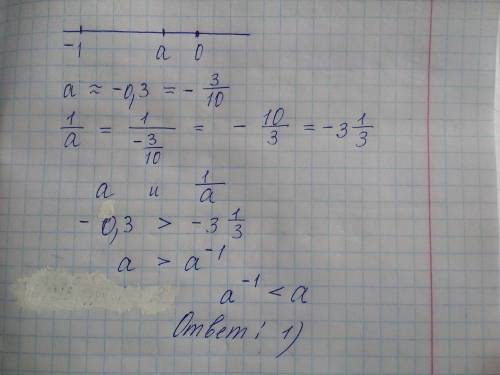 -1 a 0
a ≈ -0,3 = - 3/10
1/a = 1/(-3/10) = - 10/3 = -3 1/3
a и 1/a
- 0,3 > -3 1/3
a > a⁻¹
a⁻¹ < a
Ответ: 1)